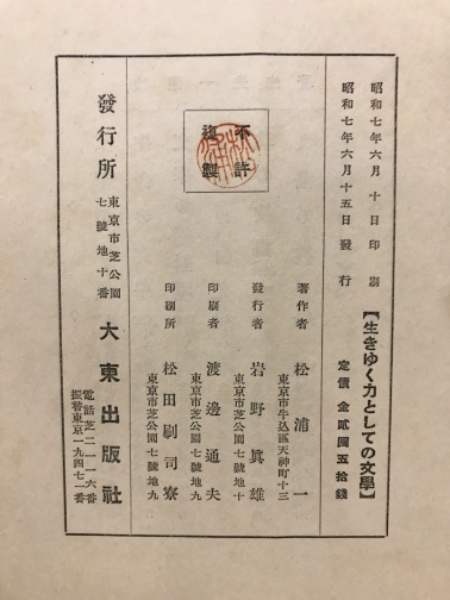 昭和七年六月十日印刷
昭和七年六月十五日發行
【生きゆく力としての文學】
定價 金貳圓五拾錢
不許
複製
著作者 松浦一
東京市牛込區天神町十三
發行者 岩野眞雄
東京市芝公園七號地十
印刷者 渡邊通夫
東京市芝公園七號地九
印刷所 松田刷司寮
東京市芝公園七號地九
發行所
東京市芝公園
七號地十番
大東出版社
電話芝二一一六番
振替東京一九四七一番